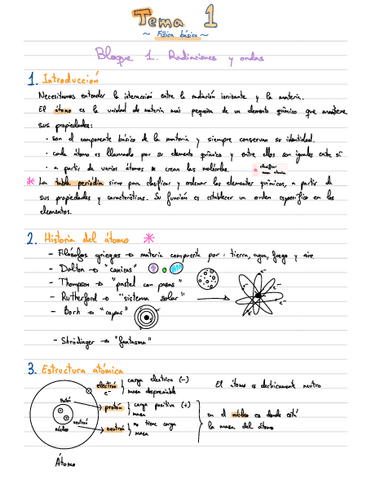 Tema 1
~ Física básica ~
Bloque 1. Radiaciones y ondas
1. Introducción
Necesitamos entender la interacción entre la radiación ionizante y la materia.
El átomo es la unidad de materia más pequeña de un elemento químico que mantiene
sus propiedades:
· son el componente básico de la materia y siempre conserva su identidad.
· cada átomo es llamado por su elemento químico y entre ellos son iguales entre sí
· a partir de varios átomos, se crean las moléculas.
* La tabla periódica sirve para clasificar y ordenar los elementos químicos, a partir de
sus propiedades y características. Su función es establecer un orden específico en los
elementos.
2. Historia del átomo *
- Filósofos griegos → materia compuesta por: tierra, agua, fuego y aire
- Dalton → "canicas"
- Thompson → "pastel con pasas"
- Rutherford → "sistema solar"
- Borh → "capas"
- Shrödinger → "fantasma"
3. Estructura atómica
electrón e- carga eléctrica (-)
masa despreciable
El átomo es eléctricamente neutro
protón carga positiva (+)
masa
neutrón no tiene carga
masa
en el núcleo es donde está
la masa del átomo
protón
neutrón
núcleo
Átomo